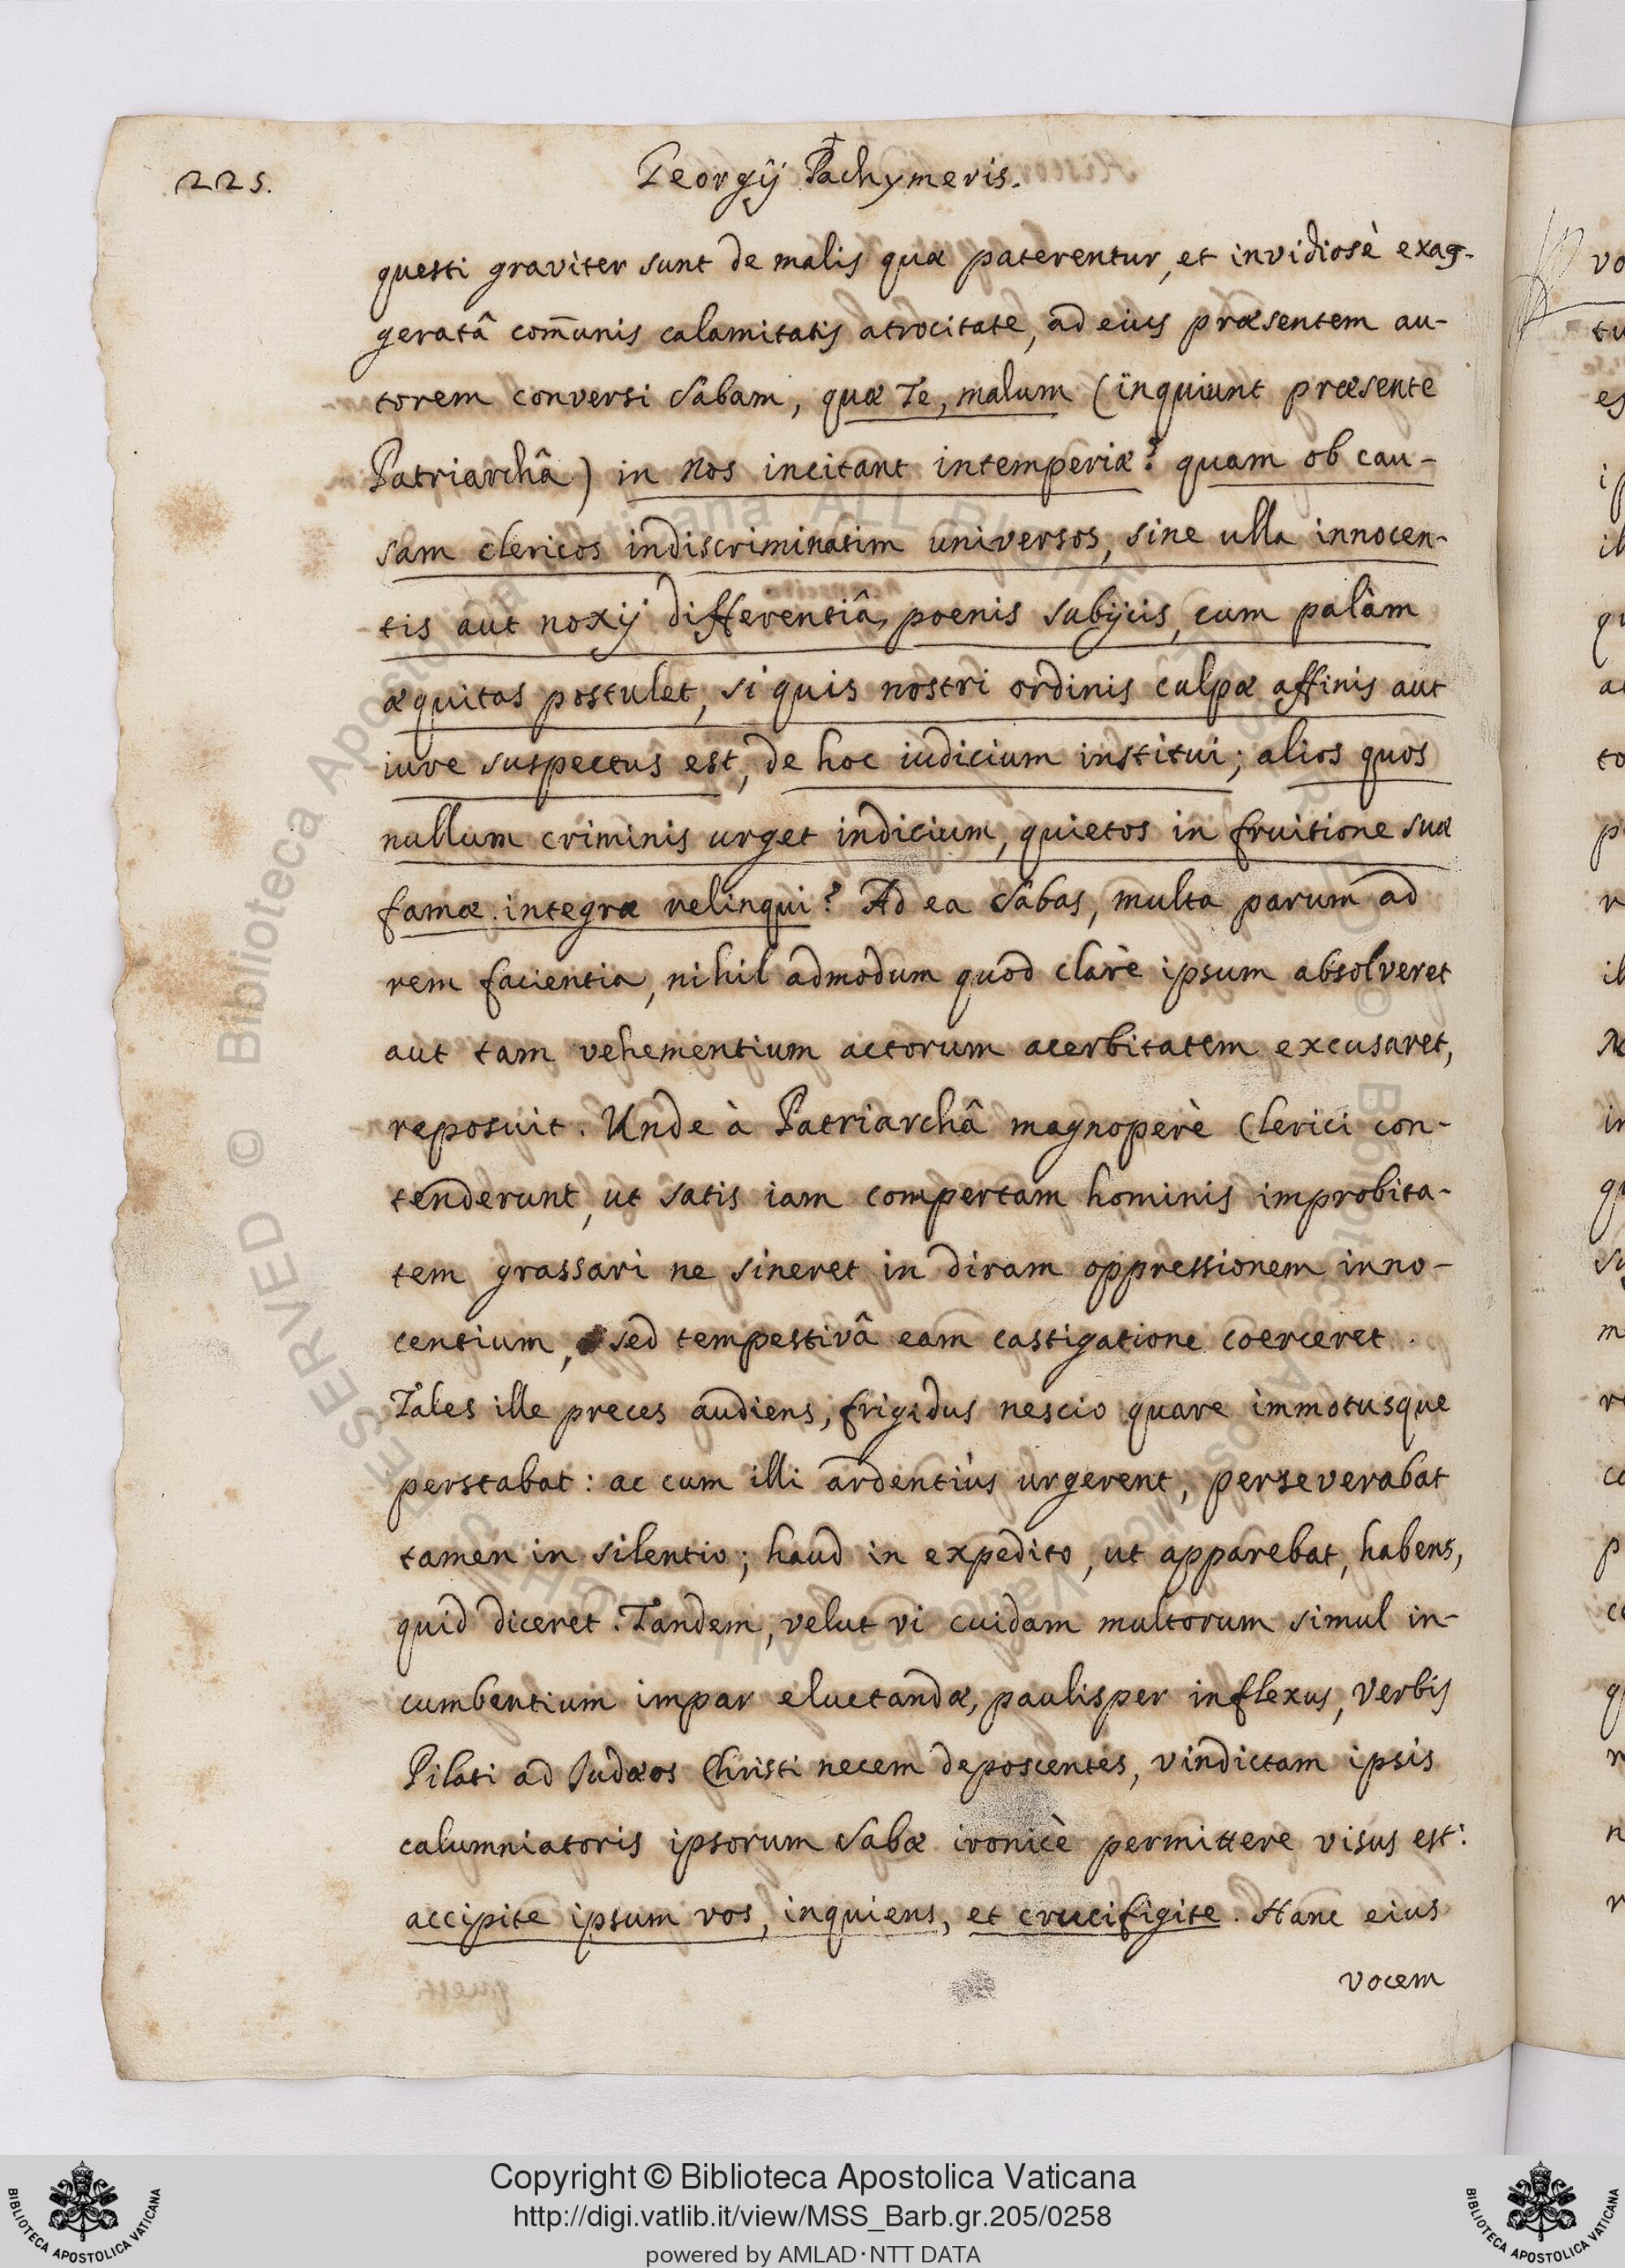 225.
Georgij Pachymeris.
questi graviter sunt de malis quæ paterentur, et invidiosè exag-
geratâ com̃unis calamitatis atrocitate, ad eius præsentem au-
torem conversi Sabam, quæ Te, malum (inquiunt præsente
Patriarchâ) in nos incitant intemperiæ? quam ob cau-
sam clericos indiscriminatim universos, sine ulla innocen-
tis aut noxij differentiâ, poenis subijcis, cum palàm
æquitas postulet, si quis nostri ordinis culpæ affinis aut
iure suspectus est, de hoc iudicium institui; alios quos
nullum criminis urget indicium, quietos in fruitione suæ
famæ integræ relinqui? Ad ea Sabas, multa parum ad
rem facientia, nihil admodum quod clarè ipsum absolveret
aut tam vehementium actorum acerbitatem excusaret,
reposuit. Unde à Patriarchâ magnoperè Clerici con-
tenderunt, ut satis iam compertam hominis improbita-
tem grassari ne sineret in diram oppressionem inno-
centium, sed tempestivâ eam castigatione coerceret.
Tales ille preces audiens, frigidus nescio quare immotusque
perstabat: ac cum illi ardentiùs urgerent, perseverabat
tamen in silentio; haud in expedito, ut apparebat, habens,
quid diceret. Tandem, velut vi cuidam multorum simul in-
cumbentium impar eluctandæ, paulisper inflexus, verbis
Pilati ad Judæos Christi necem deposcentes, vindictam ipsis
calumniatoris ipsorum Sabæ ironicè permittere visus est:
accipite ipsum vos, inquiens, et crucifigite. Hanc eius
vocem
Copyright © Biblioteca Apostolica Vaticana
http://digi.vatlib.it/view/MSS_Barb.gr.205/0258
powered by AMLAD·NTT DATA
BIBLIOTECA APOSTOLICA VATICANA
BIBLIOTECA APOSTOLICA VATICANA